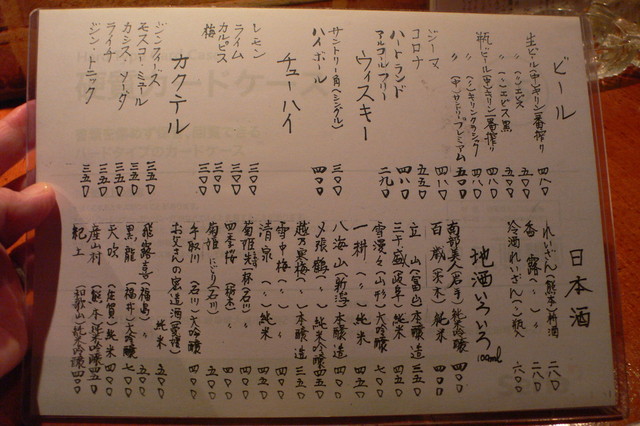 ビール
生ビール(中)キリン一番搾り 四八〇
〃 (〃)エビス 五五〇
〃 (〃)エビス黒 五五〇
瓶ビール(中)キリン一番搾り 四八〇
〃 (〃)キリンクラシック 四八〇
〃 (中)サントリープレミアム 五〇〇
ジーマ 四八〇
コロナ 五五〇
ハートランド 四八〇
アルコールフリー 二九〇
ウィスキー
サントリー角(シングル) 三〇〇
ハイボール 四〇〇
チューハイ
レモン 三〇〇
ライム 三〇〇
カルピス 三〇〇
梅 三〇〇
カクテル
ジン・フィーズ 三五〇
モスコー・ミュール 三五〇
カシス・ソーダ 三五〇
ライチ 三五〇
ジン・トニック 三五〇
日本酒
れいざん(熊本)新酒 二八〇
香露(〃) 〃 二八〇
冷酒れいざん(〃)瓶入 六〇〇
地酒いろいろ 100ml
南部美人(岩手)純米吟醸 四〇〇
百歳(茨木)純米 四〇〇
立山(富山)本醸造 三五〇
三千盛(岐阜)純米 四五〇
雪漫々(山形)大吟醸 七〇〇
一耕(〃)純米 四〇〇
八海山(新潟)本醸造 四〇〇
〆張鶴(〃)純米吟醸 四五〇
越乃寒梅(〃)本醸造 三五〇
雪中梅(〃) 〃 四〇〇
清泉(〃)純米 四〇〇
菊姫特(石川)〃
四季桜(栃木)〃 四〇〇
菊姫にごり(石川)
手取川(石川)大吟醸 五〇〇
お父さんの密造酒(愛媛)
純米
飛露喜(福島)〃 五五〇
黒龍(福井)大吟醸 七〇〇
天吹(佐賀)純米 四〇〇
産山村(熊本)純米吟醸 四五〇
紀土(和歌山)純米吟醸 四〇〇